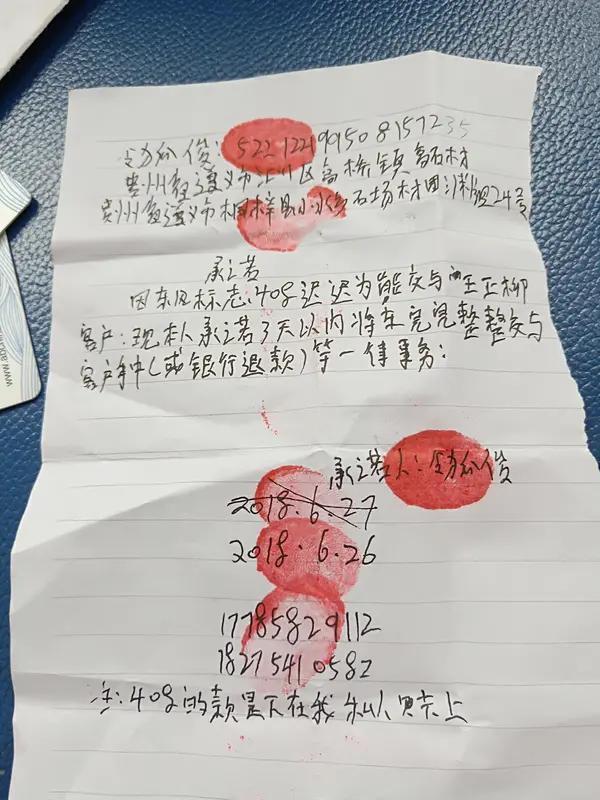 俊: 522122199508157235
贵州省遵义市汇川区高桥镇
贵州省遵义市桐梓县
承诺
因东风标志408迟迟为能交与 王正柳
客户: 现本人承诺3天以内将车完完整整交与
客户手中(或银行退款)等一律事务:
承诺人: 俊
2018.6.27
2018.6.26
17785829112
18275410582
注: 408的款是下在我私人账上
www.abc